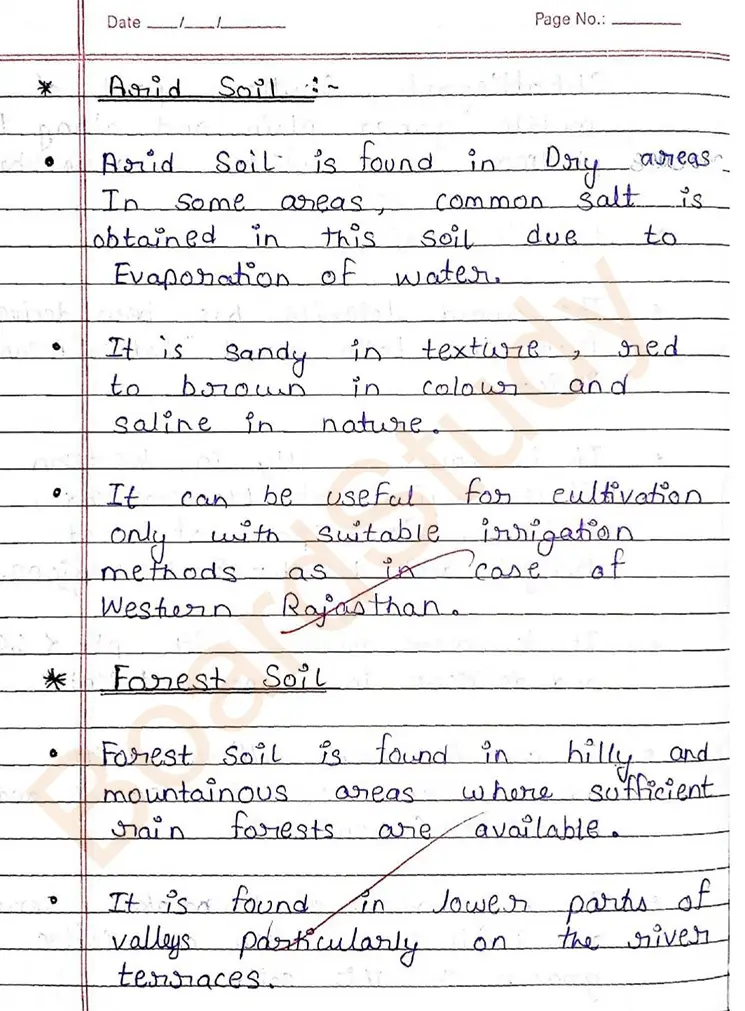 Date ___/___/______ Page No.: ______
* Arid Soil :-
• Arid Soil is found in Dry areas
In some areas, common salt is
obtained in this soil due to
Evaporation of water.
• It is sandy in texture, red
to brown in colour and
saline in nature.
• It can be useful for cultivation
only with suitable irrigation
methods as in case of
Western Rajasthan.
* Forest Soil
• Forest soil is found in hilly and
mountainous areas where sufficient
rain forests are available.
• It is found in lower parts of
valleys particularly on the river
terraces.
BoardStudy